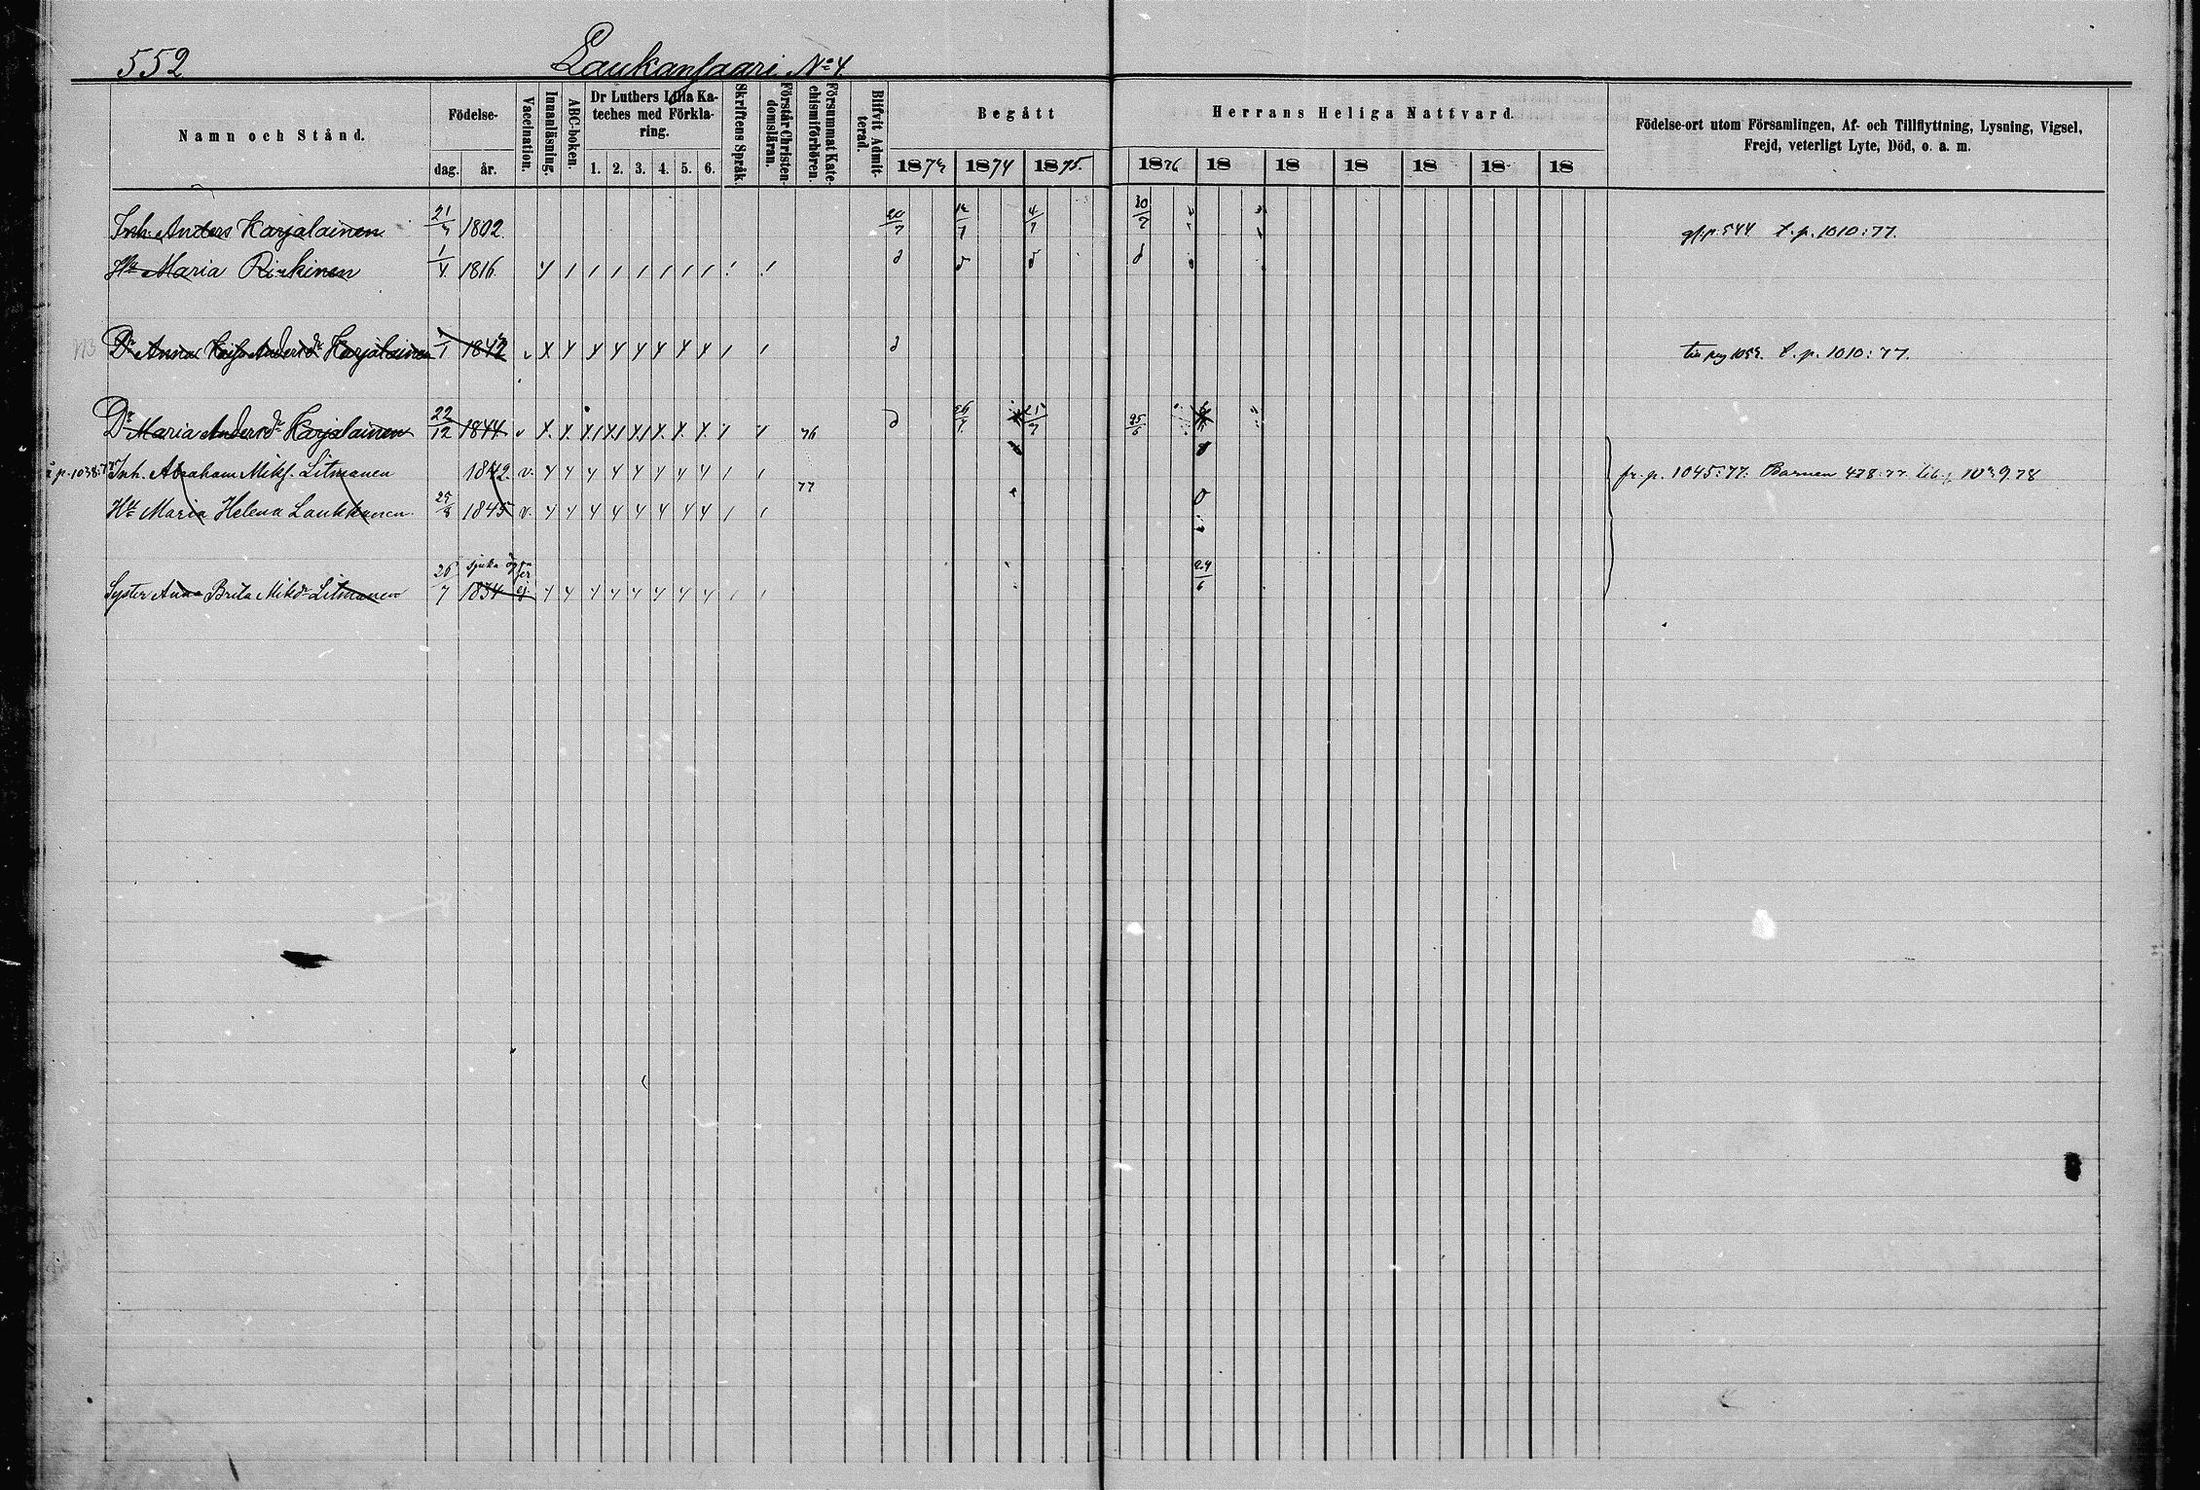 552 Laukansaari No 4.
Namn och Stånd.
Födelse-
dag. år.
Vaccination.
Innanläsning.
ABC-boken.
Dr Luthers Lilla Ka-
teches med Förkla-
ring.
1. 2. 3. 4. 5. 6.
Skriftens Språk.
Förstår Christen-
domsläran.
Försummat Kate-
chismiförhören.
Blifvit Admit-
terad.
Begått Herrans Heliga Nattvard.
1873 1874 1875. 1876 18 18 18 18 18 18
Födelse-ort utom Församlingen, Af- och Tillflyttning, Lysning, Vigsel,
Frejd, veterligt Lyte, Död, o. a. m.
Inh. Anders Karjalainen 1802. 20/7 4/7 30/7 t. p. 1010:77.
Hu Maria 1/4 1816.
Dr Anna Andersdr Karjalainen 1842 t. p. 1010:77.
Dr Maria Andersdr Karjalainen 22/12 1844 v 76 25/7 25/6
Inh. Abraham Mikf. Litmanen 1842. v. fr. p. 1045:77. Barnen 478:77
77
Hu Maria Helena Laukkanen 1845 v.
Syster Anna Brita Mikdr Litmanen 26/7 1834 ej 24/6